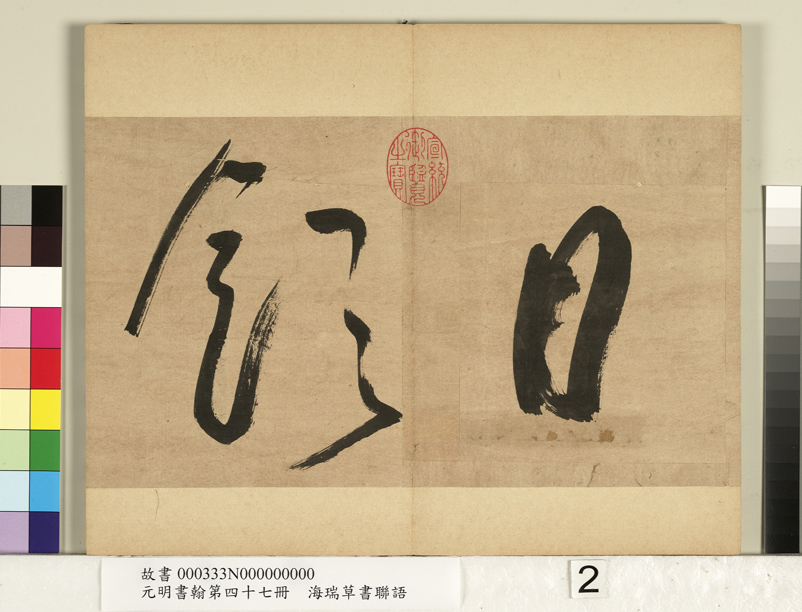 日
飲
宣統
御覽
之寶
故書 000333N000000000
元明書翰第四十七冊　海瑞草書聯語
2